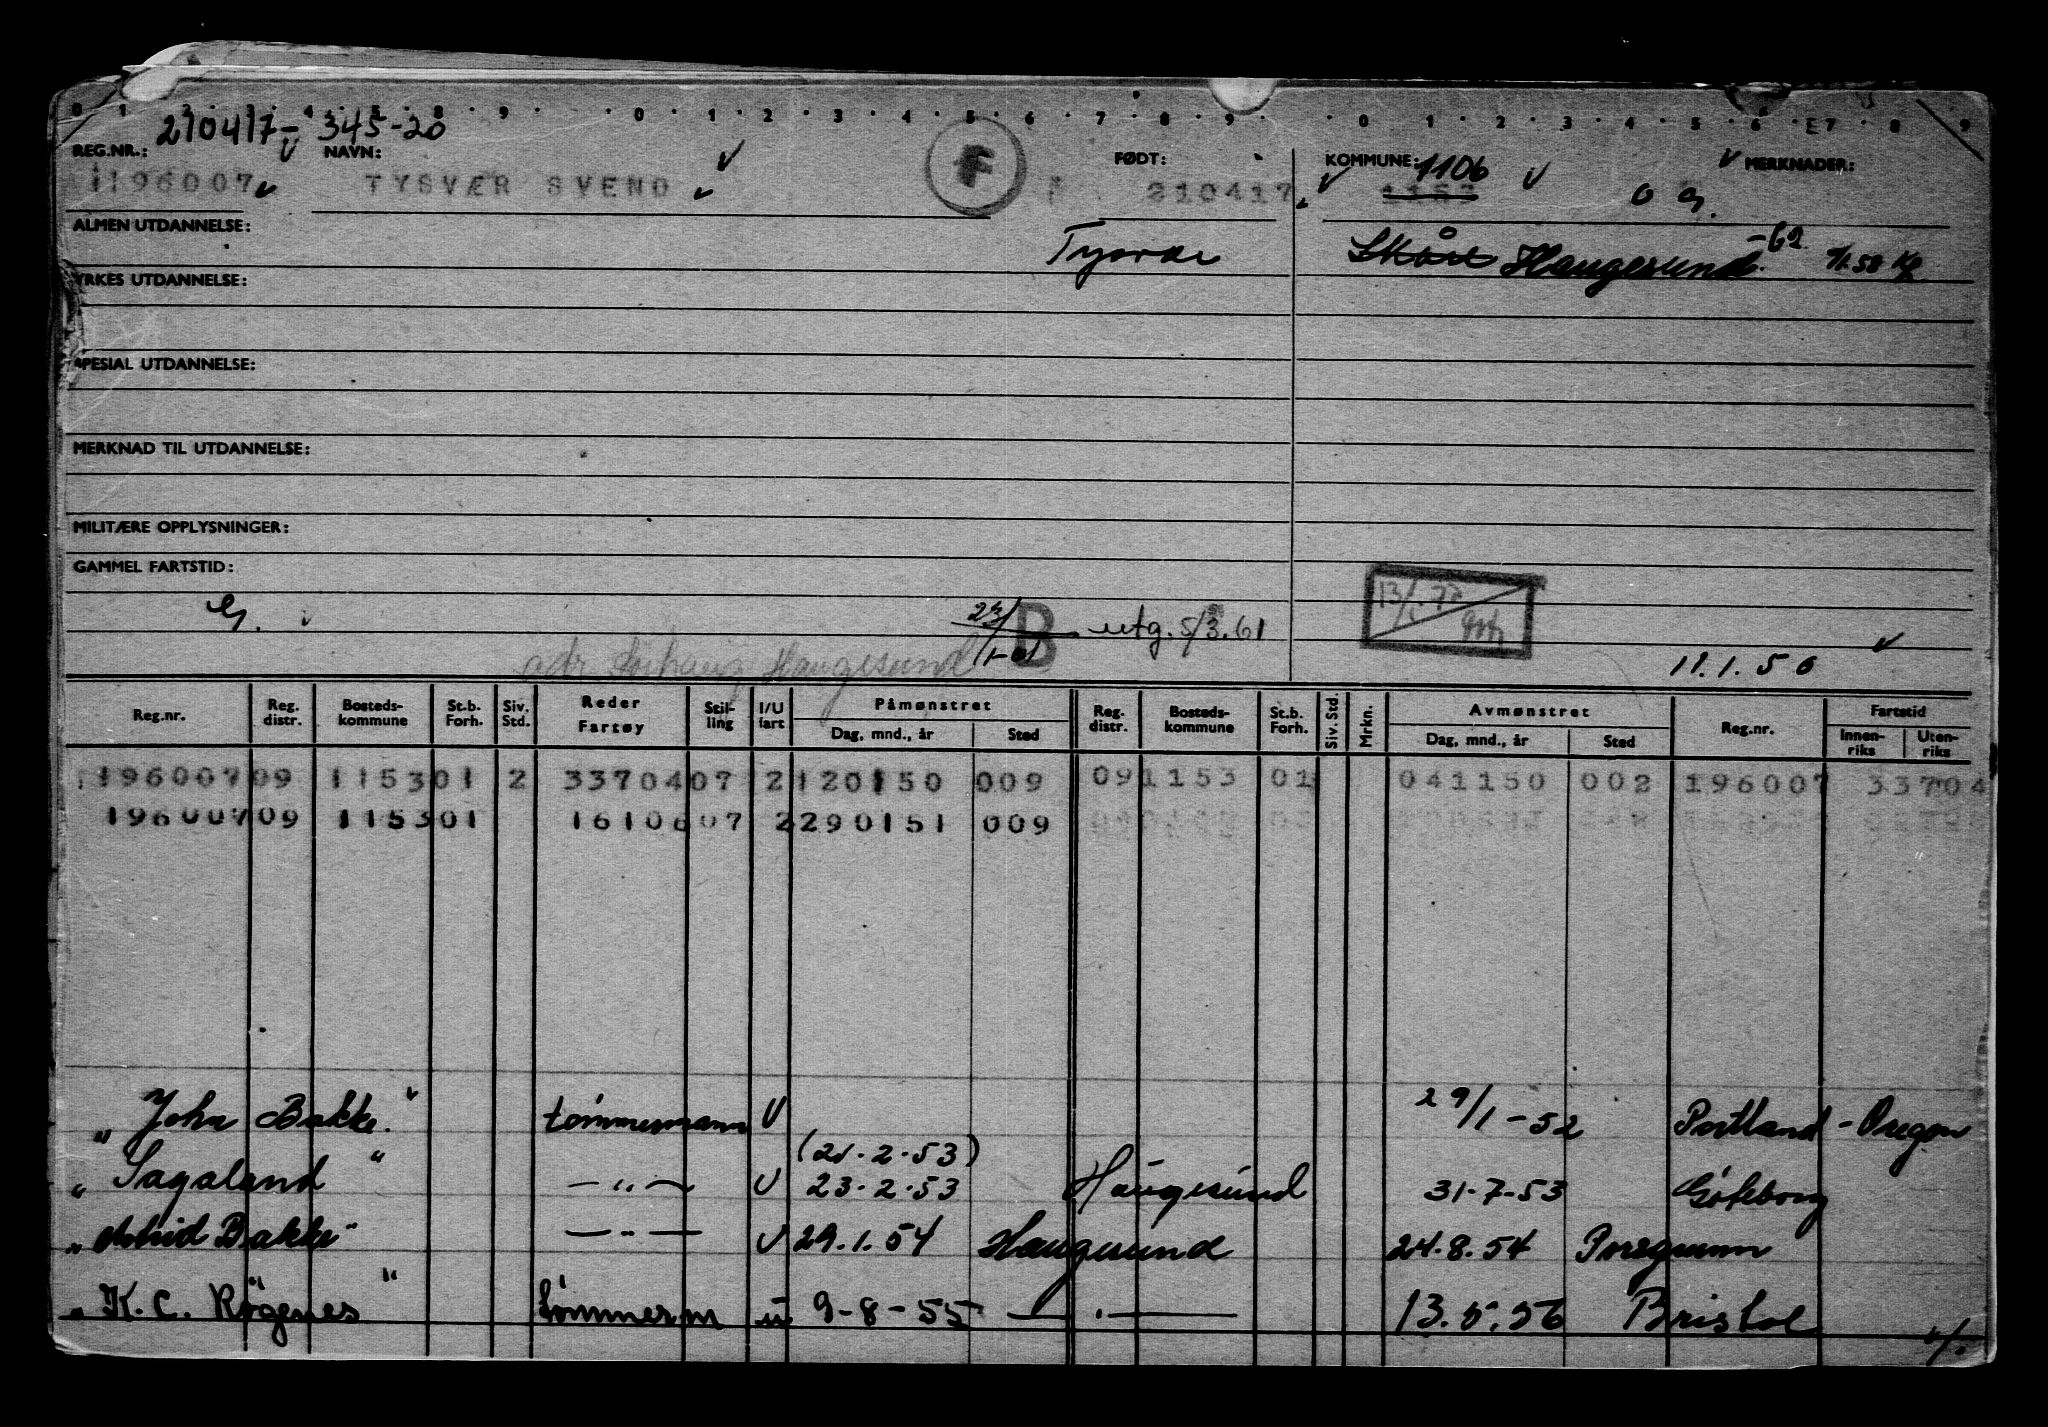 0 1 2 3 4 5 8 9 0 1 2 3 4 5 6 7 8 9 0 1 2 3 4 5 6 E7 8 9
210417-345-20
REG.NR.: NAVN: FØDT: KOMMUNE: 1106 MERKNADER:
1196007 TYSVÆR SVEND F 210417 1153 O G.
ALMEN UTDANNELSE: Skåre Haugesund -62
YRKES UTDANNELSE:
SPESIAL UTDANNELSE:
MERKNAD TIL UTDANNELSE:
MILITÆRE OPPLYSNINGER:
GAMMEL FARTSTID:
G. 23/1-61 B utg. 5/3.61
adr Haugesund 11.1.50
Reg.nr. Reg. distr. Bosteds-kommune St.b. Forh. Siv. Std. Reder Fartøy Stil-ling I/U fart Påmønstret Dag, mnd., år Sted Reg. distr. Bosteds-kommune St.b. Forh. Siv. Std. Mrkn. Avmønstret Dag, mnd., år Sted Reg.nr. Fartstid Innen-riks Uten-riks
1196007 09 1153 01 2 33704 07 2 120150 009 09 1153 01 041150 002 196007 33704
196007 09 1153 01 16106 07 2 290151 009
"John Bakke" tømmermann U 29/1-52 Portland - Oregon
(21.2.53)
"Sagaland" —"— U 23.2.53 Haugesund 31.7.53 Göteborg
"Astrid Bakke" —"— U 29.1.54 Haugesund 24.8.54 Porsgrunn
"K. C. Røgenes" tømmerm u 9-8-55 —"— 13.5.56 Bristol